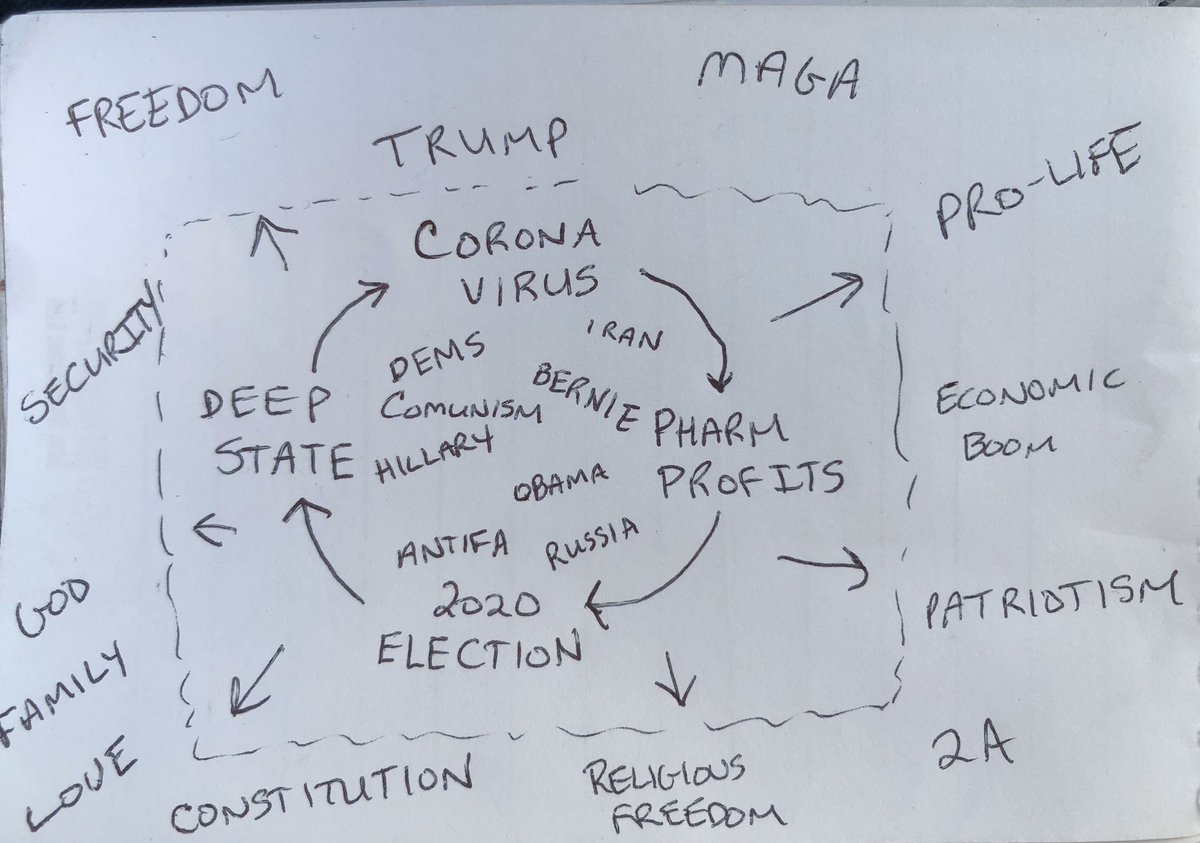 FREEDOM
MAGA
TRUMP
PRO-LIFE
CORONA
VIRUS
SECURITY
IRAN
DEMS
BERNIE
DEEP
STATE
COMUNISM
HILLARY
PHARM
PROFITS
ECONOMIC
BOOM
OBAMA
ANTIFA
RUSSIA
2020
ELECTION
GOD
FAMILY
LOVE
PATRIOTISM
2A
CONSTITUTION
RELIGIOUS
FREEDOM